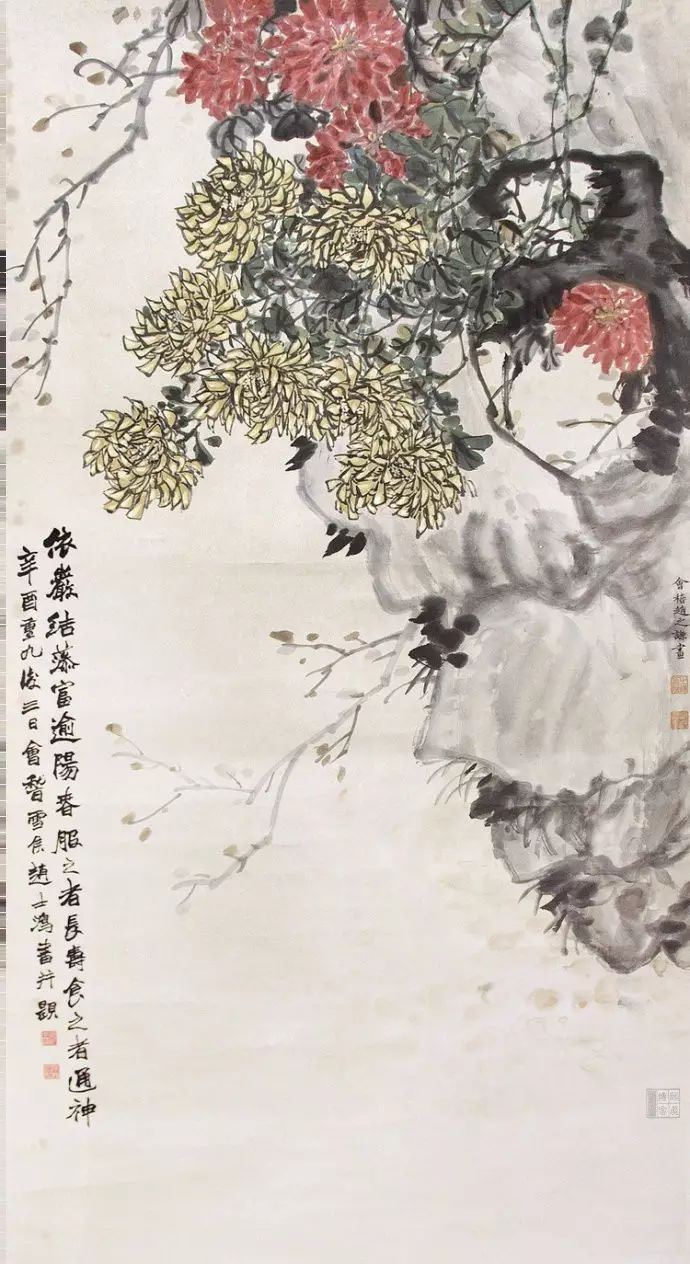 會稽趙之謙畫
依巖結蒂富逾陽春服之者長壽食之者通神
辛酉重九後三日會稽雪侯趙士鴻書并題